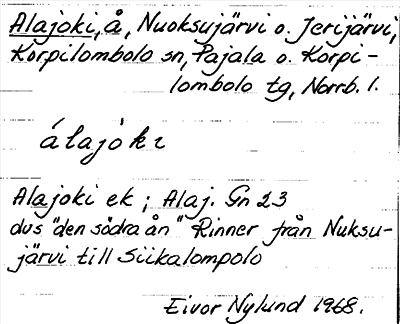 Alajoki, å, Nuoksujärvi o. Jerijärvi,
Korpilombolo sn, Pajala o. Korpi-
lombolo tg, Norrb. l.
álajòkı
Alajoki ek ; Alaj. Gn 23
dvs "den södra ån" Rinner från Nuksu-
järvi till Siikalompolo
Eivor Nylund 1968.